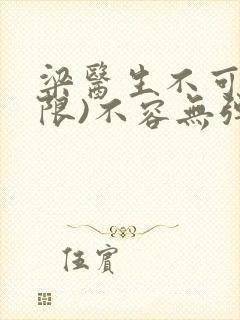 梁醫生不可
限)不容無弹
伍賓